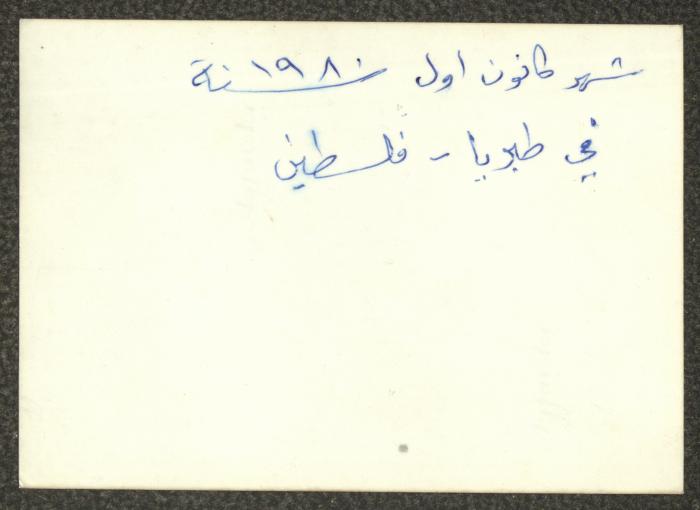 شهر كانون اول سنة ١٩٨٠
في طبريا - فلسطين